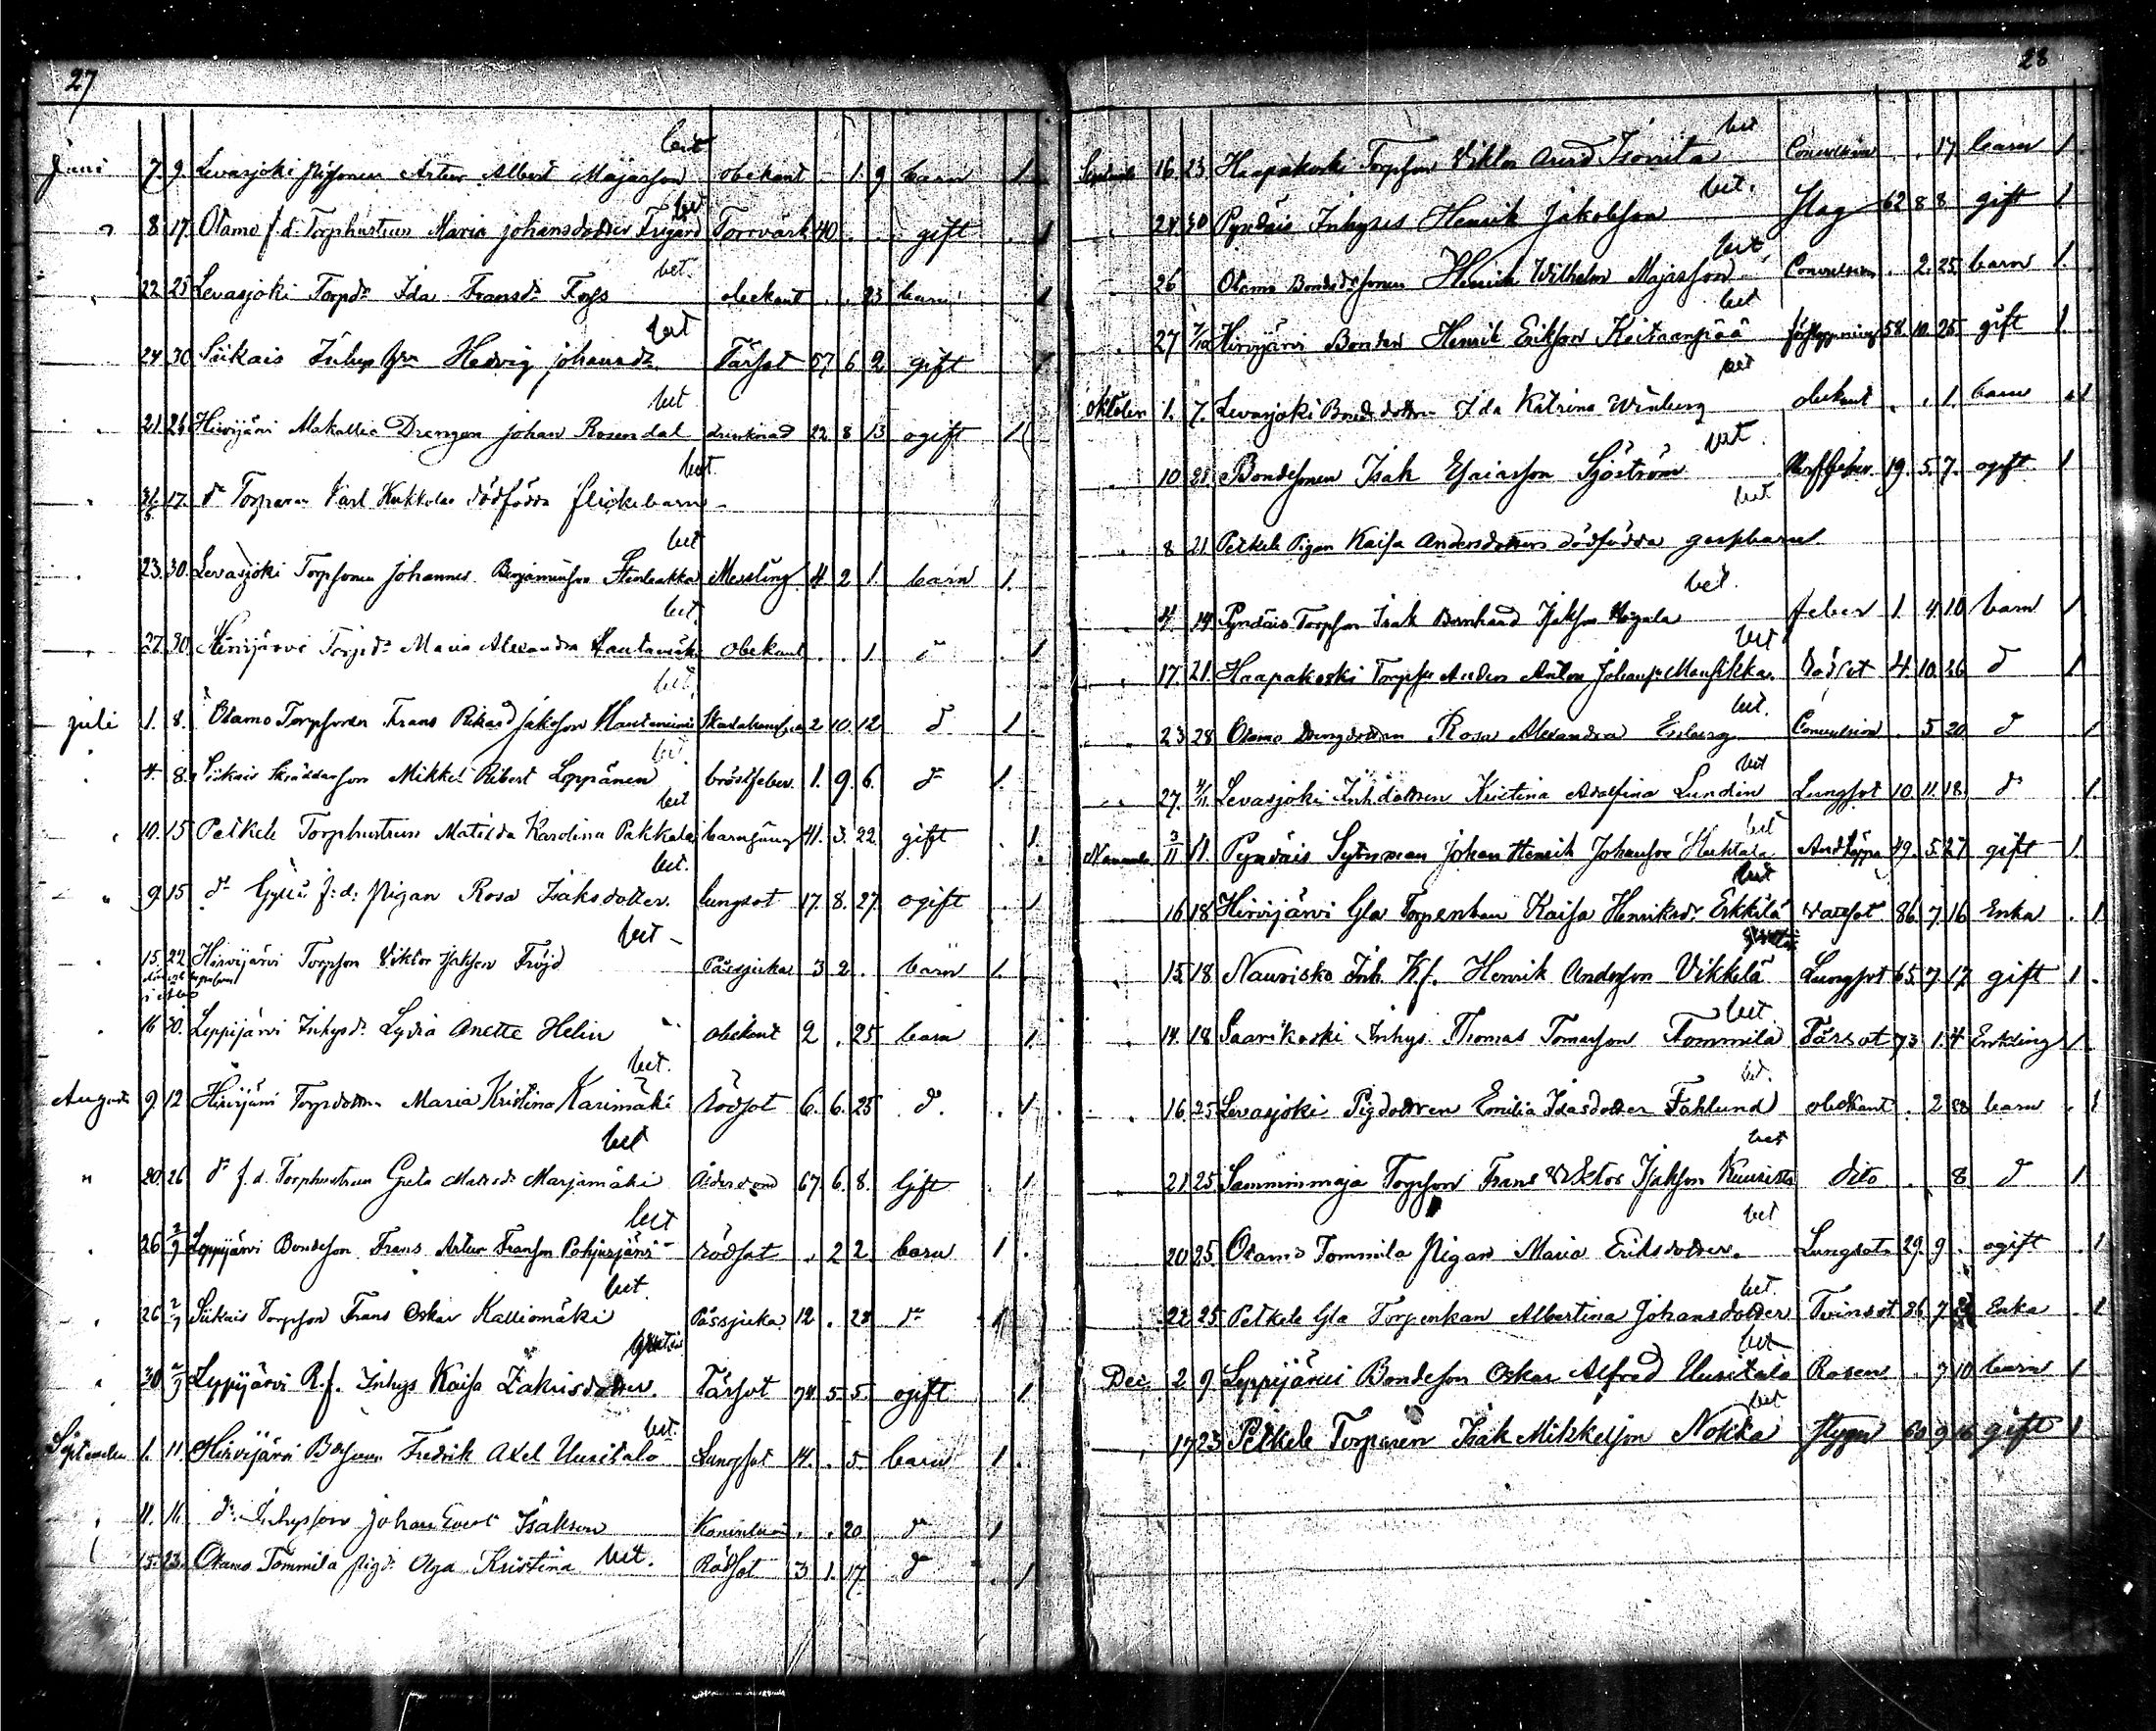 27
bet
Juni 7. 9. Levasjoki Artur Albert Majasson obekant - 1. 9 barn 1.
bet
" 8. 17. Otamo f. d. Torphustrun Maria Johansdotter Frigård Torrvärk 40 . . gift . 1
bet.
" 22 25 Levasjoki Torpdr Ida Fransdr obekant . . 23 barn 1
bet
24 30 Siikais Inhys Hedvig Johansdr Tärsot 57 6 2 gift 1
bet
" 21 26 Hirvijärvi Makallio Drengen Johan Rosendal drunknad 22 8 13 ogift 1
bet.
" 17. dr Torparen Karl Kukkolas dödfödda flickebarn
bet
" 23. 30. Levasjoki Torpsonen Johannes Benjaminson Messling 4. 2 1. barn 1.
bet.
" 27. 30. Hirvijärvi Torpdr Maria Alexandra Hautamäki Obekant . . 1. dr . 1
bet.
Juli 1. 8. Otamo Torpsonen Frans Rikard Jakson 2 10. 12 dr 1.
bet.
" 4. 8. Siikais Skräddarson Mikkel Robert Leppänen bröstfeber. 1. 9. 6. dr 1.
bet
" 10. 15 Petkele Torphustrun Matilda Karolina Pakkala barnsäng 41. 3. 22. gift . 1.
bet.
" 9 15 dr f: d: Pigan Rosa Isaksdotter. lungsot 17. 8. 27. ogift . 1
bet -
" 15. 22. Hirvijärvi Torpson Viktor Jakson Fröjd Pässjuka 3 2. . barn 1.
" 16 30. Leppijärvi Inhysdr Lydia Anette Helin obekant 2 . 25 barn 1.
bet.
Augusti 9 12 Hirvijärvi Torpdottren Maria Kristina Karimäki Rödsot 6. 6. 25 dr. . 1
bet
" 20. 26 dr f. d. Torphustrun Greta Matsdr Marjamäki Ålderdom 67. 6. 8. Gift . 1.
bet
" 26 2/9 Leppijärvi Bondeson Frans Artur Franson Pohjasjärvi rödsot . 2 2. barn 1.
bet.
" 26 2/9 Siikais Torpson Frans Oskar Kalliomäki Pässjuka 12 . 28 dr 1
gratis
" 30 2/9 Leppijärvi R. f. Inhys Kaisa Zakrisdotter. Tärsot 74. 5. 5. ogift 1.
bet.
September 1. 11. Hirvijärvi Fredrik Axel Uusitalo Lungsot 14. . 5. barn 1.
" 11. 16. dr. Inhysson Johan Evert Isakson . . 20. dr 1
15. 23. Otamo Tommila Pigdr Olga Kristina bet. Rödsot 3 1. 17. dr . 1
28
bet
September 16. 23. Haapakoski Torpson Viktor Arvid Convulsion . . 17 barn 1.
bet.
24. 30 Pyndäis Inhyses Henrik Jakobsson Slag 62 8 8. gift 1
bet
" 26 Otamo Henrik Wilhelm Majasson Convulsion . 2. 25. barn 1.
bet
" 27 7/10 Hirvijärvi Bonden Henrik Erikson Koitaanpää förstoppning 58. 10. 25 gift 1.
bet
Oktober 1. 7. Levasjoki Bondedottren Ida Katrina Winberg obekant . . 1. barn 1
bet.
" 10 28. Bondesonen Isak Esaiasson Sjöström 19. 5. 7. ogift 1
bet
" 8 21 Petkele Pigan Kaisa Andersdotters dödfödda gossebarn
bet.
" 4. 14 Pyndäis Torpson Isak Bernhard Jakson feber 1. 4 10 barn 1
bet
" 17. 21. Haapakoski Torpson Anders Anton Johanson Mansikka. Rödsot 4. 10. 26 dr 1
bet.
23 28 Otamo Drengdottren Rosa Alexandra Convulsion . 5 20 dr 1
bet
27. 4/11. Levasjoki Inhdottren Kristina Adolfina Lundin Lungsot 10. 11. 18. dr . 1.
bet
November 3/11 11. Pyndäis Sytnman Johan Henrik Johanson Huhtala 49. 5. 27 gift 1.
bet
" 16 18 Hirvijärvi Gla Torpenkan Kaisa Henriksdr Erkkilä 86. 7. 16 Enka . 1.
15. 18 Naurisko Inh. K.f. Henrik Anderson Vikkelä Lungsot 65. 7 17. gift 1.
bet.
14. 18 Saarikoski Inhys. Thomas Tomasson Tommila Tärsot 73 1. 4 Enkling 1.
bet.
" 16. 25 Levasjoki Pigdottren Emilia Isasdotter Fahlund obekant . 2 28 barn . 1
bet
21. 25. Samminmaja Torpson Frans Viktor Jakson Kuusisto dito . 8. dr 1
bet
20 25 Otamo Tommila Pigan Maria Eriksdotter. Lungsot 29. 9 . ogift . 1
bet.
22 25 Petkele Gla Torpenkan Albertina Johansdotter Tvinsot 36. 7 Enka . 1
bet
Dec. 2 9 Leppijärvi Bondeson Oskar Alfred Uusitalo Rosen . 7 10 barn 1
bet
" 17 23 Petkele Torparen Isak Mikkelson Nokka Stygn 60 9 16 gift 1